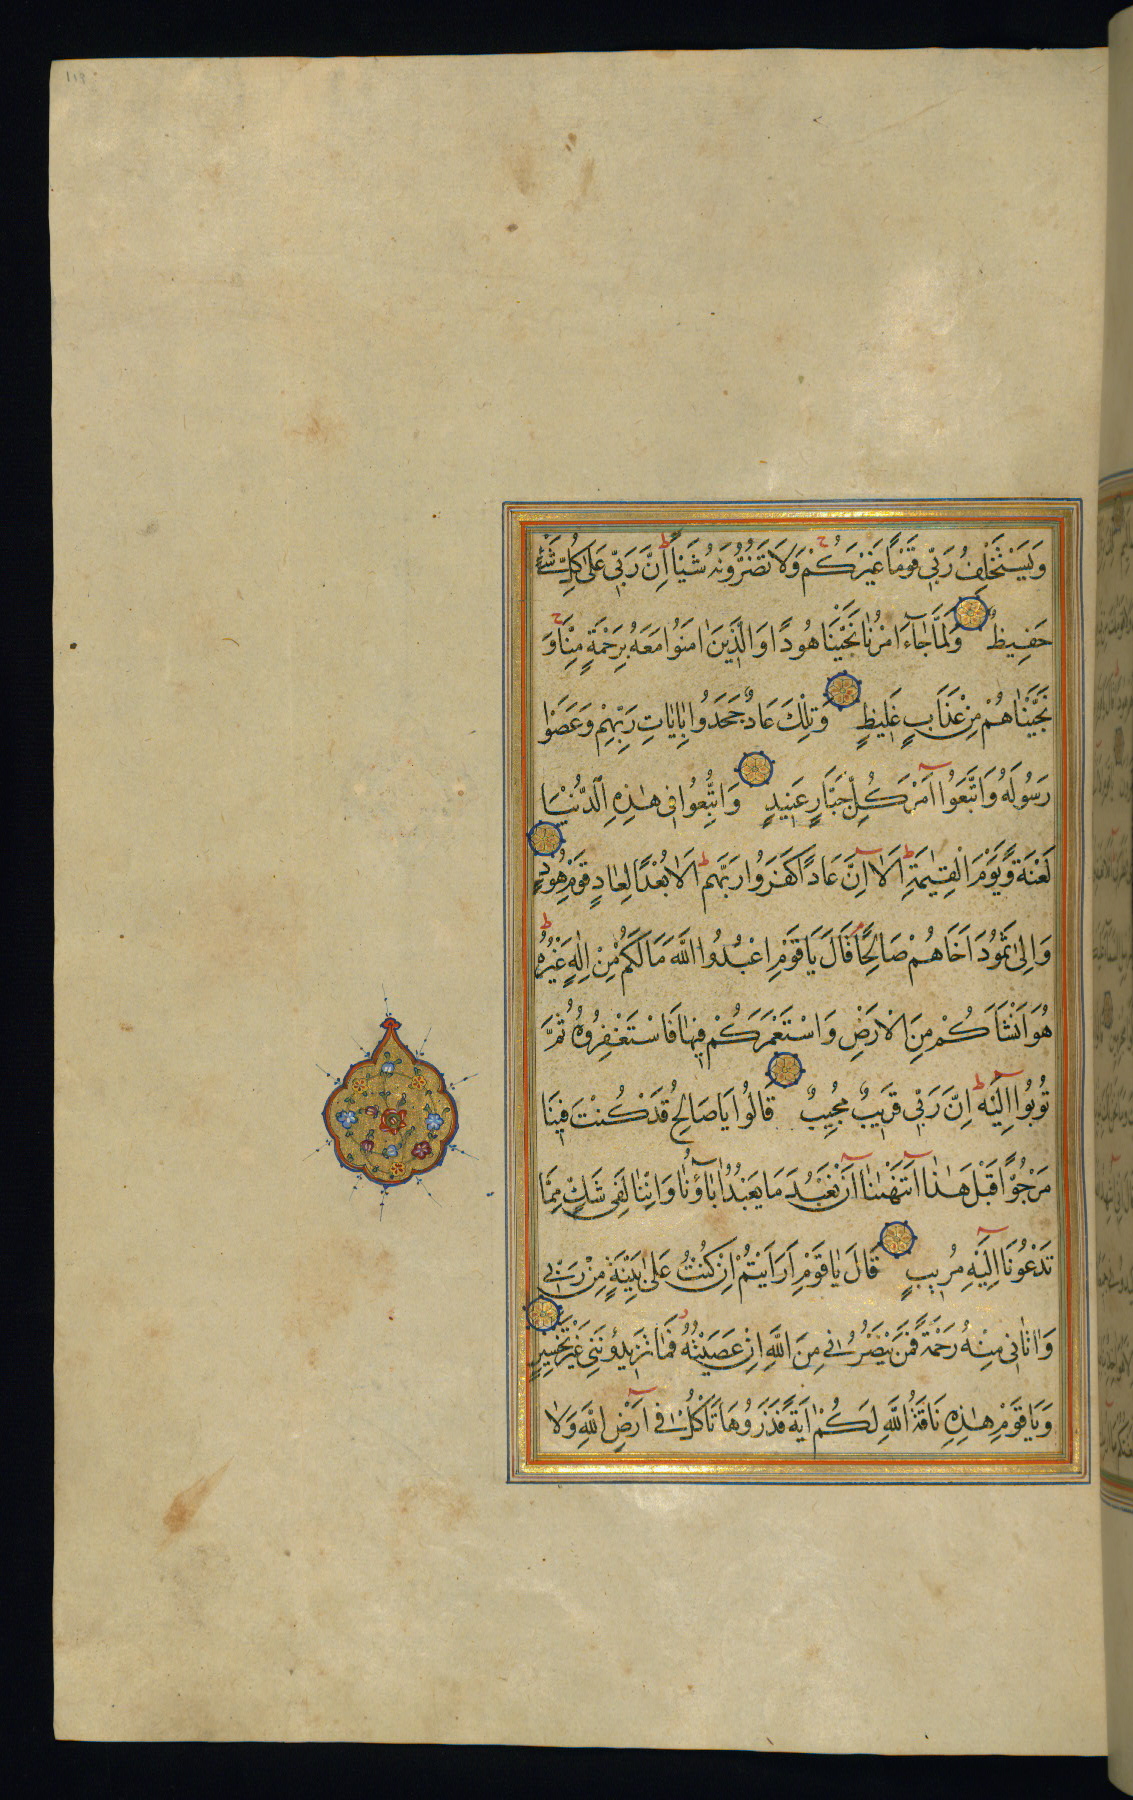 وَيَسْتَخْلِفُ رَبّى قَوْمًا غَيْرَكُمْ وَلَا تَضُرُّونَهُ شَيْئًا اِنَّ رَبّى عَلَى كُلِّ شَىْءٍ
حَفِيظٌ وَلَمَّا جَاءَ اَمْرُنَا نَجَّيْنَا هُودًا وَالَّذِينَ اٰمَنُوا مَعَهُ بِرَحْمَةٍ مِنَّا وَ
نَجَّيْنَاهُمْ مِنْ عَذَابٍ غَلِيظٍ وَتِلْكَ عَادٌ جَحَدُوا بِاٰيَاتِ رَبِّهِمْ وَعَصَوْا
رَسُولَهُ وَاتَّبَعُوا اَمْرَ كُلِّ جَبَّارٍ عَنِيدٍ وَاُتْبِعُوا فِى هٰذِهِ الدُّنْيَا
لَعْنَةً وَيَوْمَ الْقِيٰمَةِ اَلَا اِنَّ عَادًا كَفَرُوا رَبَّهُمْ اَلَا بُعْدًا لِعَادٍ قَوْمِ هُودٍ
وَاِلٰى ثَمُودَ اَخَاهُمْ صَالِحًا قَالَ يَا قَوْمِ اعْبُدُوا اللّٰهَ مَا لَكُمْ مِنْ اِلٰهٍ غَيْرُهُ
هُوَ اَنْشَاَكُمْ مِنَ الْاَرْضِ وَاسْتَعْمَرَكُمْ فِيهَا فَاسْتَغْفِرُوهُ ثُمَّ
تُوبُوا اِلَيْهِ اِنَّ رَبّى قَرِيبٌ مُجِيبٌ قَالُوا يَا صَالِحُ قَدْ كُنْتَ فِينَا
مَرْجُوًّا قَبْلَ هٰذَا اَتَنْهٰينَا اَنْ نَعْبُدَ مَا يَعْبُدُ اٰبَاؤُنَا وَاِنَّنَا لَفِى شَكٍّ مِمَّا
تَدْعُونَا اِلَيْهِ مُرِيبٍ قَالَ يَا قَوْمِ اَرَاَيْتُمْ اِنْ كُنْتُ عَلٰى بَيِّنَةٍ مِنْ رَبّى
وَاٰتَانِى مِنْهُ رَحْمَةً فَمَنْ يَنْصُرُنِى مِنَ اللّٰهِ اِنْ عَصَيْتُهُ فَمَا تَزِيدُونَنِى غَيْرَ تَخْسِيرٍ
وَيَا قَوْمِ هٰذِهِ نَاقَةُ اللّٰهِ لَكُمْ اٰيَةً فَذَرُوهَا تَاْكُلْ فِى اَرْضِ اللّٰهِ وَلَا